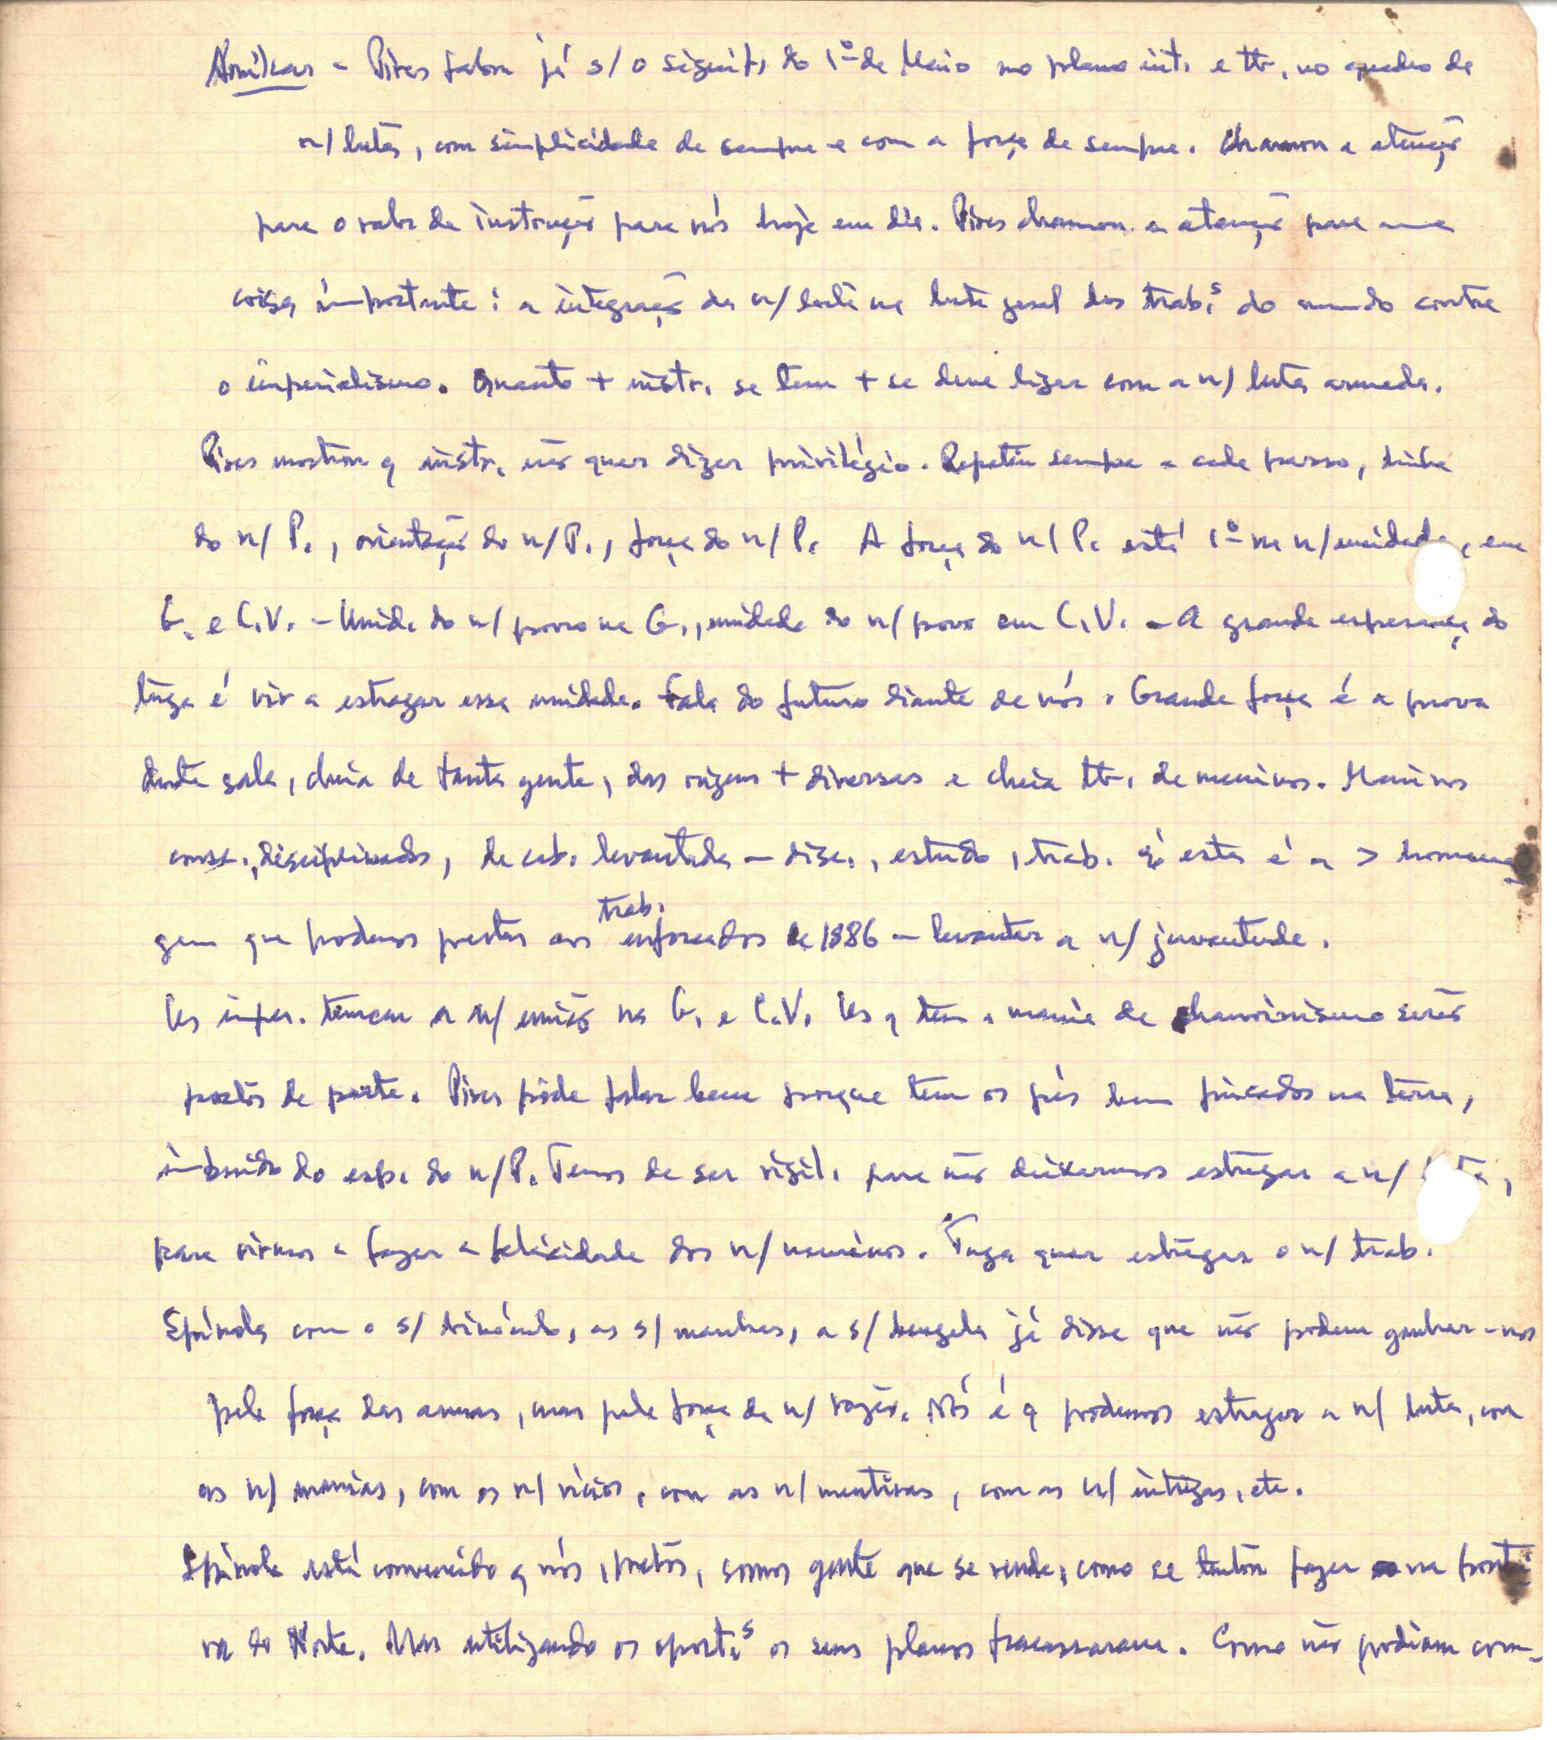 Amílcar - Pires falou já s/ o signif. do 1º de Maio no plano int. e tb., no quadro da
n/ luta, com simplicidade de sempre e com a força de sempre. Chamou a atenção
para o valor da instrução para nós hoje em dia. Pires chamou a atenção para uma
coisa importante: a integração da n/ luta na luta geral dos trab.s do mundo contra
o imperialismo. Quanto + instr. se tem + se deve ligar com a n/ luta armada.
Pires mostrou q instr. não quer dizer privilégio. Repetiu sempre a cada passo, linha
do n/ P., orientação do n/ P., força do n/ P. A força do n/ P. está 1º na n/ unidade, em
G. e C.V. - Unid. do n/ povo na G., unidade do n/ povo em C.V. - A grande esperança do
tuga é vir a estragar essa unidade. Fala do futuro diante de nós. Grande força é a prova
desta sala, cheia de tanta gente, das origens + diversas e cheia tb. de meninos. Meninos
consc., disciplinados, de cab. levantada - disc., estudo, trab. q esta é a > homena
gem que podemos prestar aos trab. enforcados de 1886 - levantar a n/ juventude.
Os imper. temem a n/ união na G. e C.V. Os q têm a mania de chauvinismo serão
postos de parte. Pires pôde falar bem porque tem os pés bem fincados na terra,
imbuído do esp. do n/ P. Temos de ser vigil. para não deixarmos estragar a n/
para virmos a fazer a felicidade dos n/ meninos. Tuga quer estragar o n/ trab.
Spínola com o s/ binóculo, as s/ manhas, a s/ bengala já disse que não podem ganhar-nos
pela força das armas, mas pela força da n/ razão. Nós é q podemos estragar a n/ luta, com
as n/ manias, com os n/ vícios, com as n/ mentiras, com as n/ intrigas, etc.
Spínola está convencido q nós, pretos, somos gente que se vende, como se tentou fazer na frontei
ra do Norte. Mas utilizando os oport.s os seus planos fracassaram. Como não podiam com-